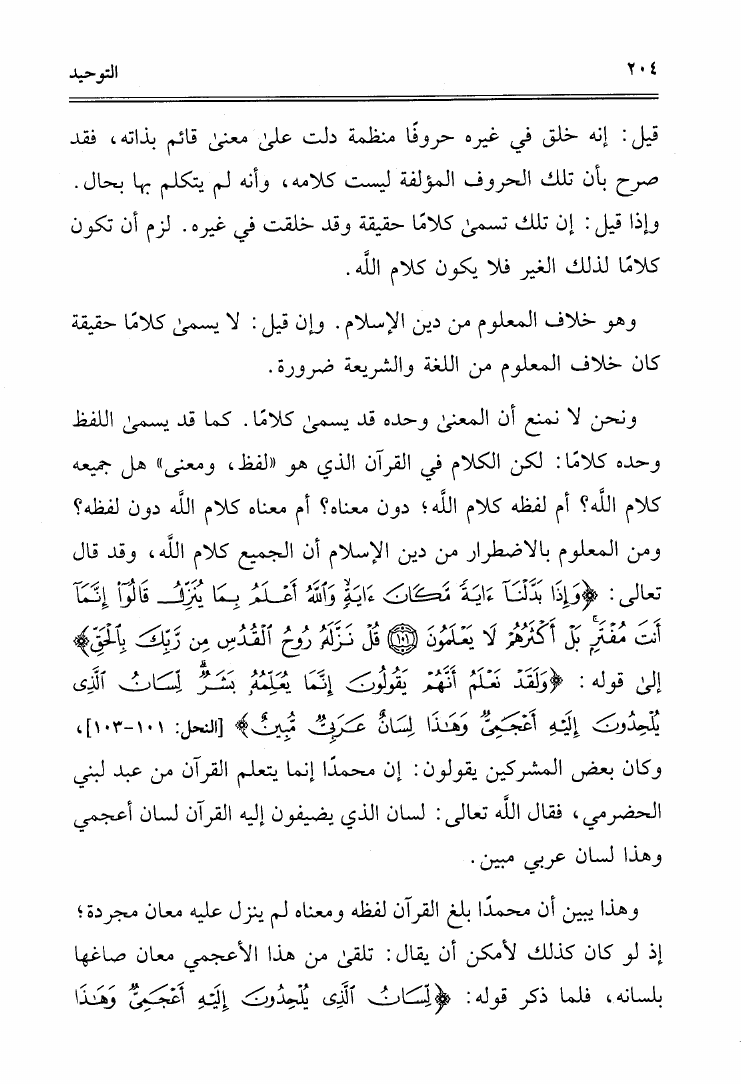 ٢٠٤ التوحيد
قيل: إنه خلق في غيره حروفًا منظمة دلت علىٰ معنىٰ قائم بذاته، فقد
صرح بأن تلك الحروف المؤلفة ليست كلامه، وأنه لم يتكلم بها بحال.
وإذا قيل: إن تلك تسمىٰ كلامًا حقيقة وقد خلقت في غيره. لزم أن تكون
كلامًا لذلك الغير فلا يكون كلام اللَّه.
وهو خلاف المعلوم من دين الإسلام. وإن قيل: لا يسمىٰ كلامًا حقيقة
كان خلاف المعلوم من اللغة والشريعة ضرورة.
ونحن لا نمنع أن المعنىٰ وحده قد يسمىٰ كلامًا. كما قد يسمىٰ اللفظ
وحده كلامًا: لكن الكلام في القرآن الذي هو «لفظ، ومعنى» هل جميعه
كلام اللَّه؟ أم لفظه كلام اللَّه؛ دون معناه؟ أم معناه كلام اللَّه دون لفظه؟
ومن المعلوم بالاضطرار من دين الإسلام أن الجميع كلام اللَّه، وقد قال
تعالى: ﴿وَإِذَا بَدَّلْنَآ ءَايَةً مَّكَانَ ءَايَةٍۙ وَٱللَّهُ أَعْلَمُ بِمَا يُنَزِّلُ قَالُوٓا۟ إِنَّمَآ
أَنتَ مُفْتَرٍۭۚ بَلْ أَكْثَرُهُمْ لَا يَعْلَمُونَ ١٠١ قُلْ نَزَّلَهُۥ رُوحُ ٱلْقُدُسِ مِن رَّبِّكَ بِٱلْحَقِّ﴾
إلىٰ قوله: ﴿وَلَقَدْ نَعْلَمُ أَنَّهُمْ يَقُولُونَ إِنَّمَا يُعَلِّمُهُۥ بَشَرٌۗ لِّسَانُ ٱلَّذِى
يُلْحِدُونَ إِلَيْهِ أَعْجَمِىٌّ وَهَـٰذَا لِسَانٌ عَرَبِىٌّ مُّبِينٌ﴾ [النحل: ١٠١-١٠٣]،
وكان بعض المشركين يقولون: إن محمدًا إنما يتعلم القرآن من عبد لبني
الحضرمي، فقال اللَّه تعالى: لسان الذي يضيفون إليه القرآن لسان أعجمي
وهذا لسان عربي مبين.
وهذا يبين أن محمدًا بلغ القرآن لفظه ومعناه لم ينزل عليه معان مجردة؛
إذ لو كان كذلك لأمكن أن يقال: تلقىٰ من هذا الأعجمي معان صاغها
بلسانه، فلما ذكر قوله: ﴿لِّسَانُ ٱلَّذِى يُلْحِدُونَ إِلَيْهِ أَعْجَمِىٌّ وَهَـٰذَا